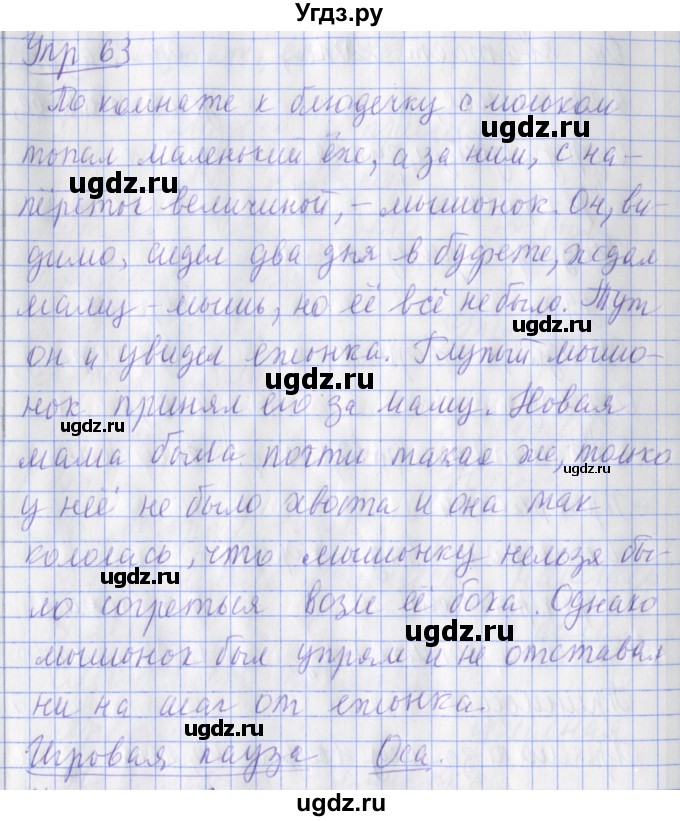 Угдз.ру
Упр 63
По комнате к блюдечку с мольком
топал маленький ёж, а за ним, с на-
пёрсток величиной, - мышонок. Он, ви-
димо, сидел два дня в буфете, ждал
маму - мышь, но её всё не было. Тут
он и увидел ежонка. Глупый мышо-
нок принял его за маму. Новая
мама была почти такая же, только
у неё не было хвоста и она так
кололась, что мышонку нельзя бы-
ло согреться возле её бока. Однако
мышонок был упрям и не отставал
ни на шаг от ежонка.
Игровая пауза Оса.
ugdz.ru
ugdz.ru
ugdz.ru
ugdz.ru
ugdz.ru
ugdz.ru
ugdz.ru
ugdz.ru
ugdz.ru
ugdz.ru
ugdz.ru
ugdz.ru